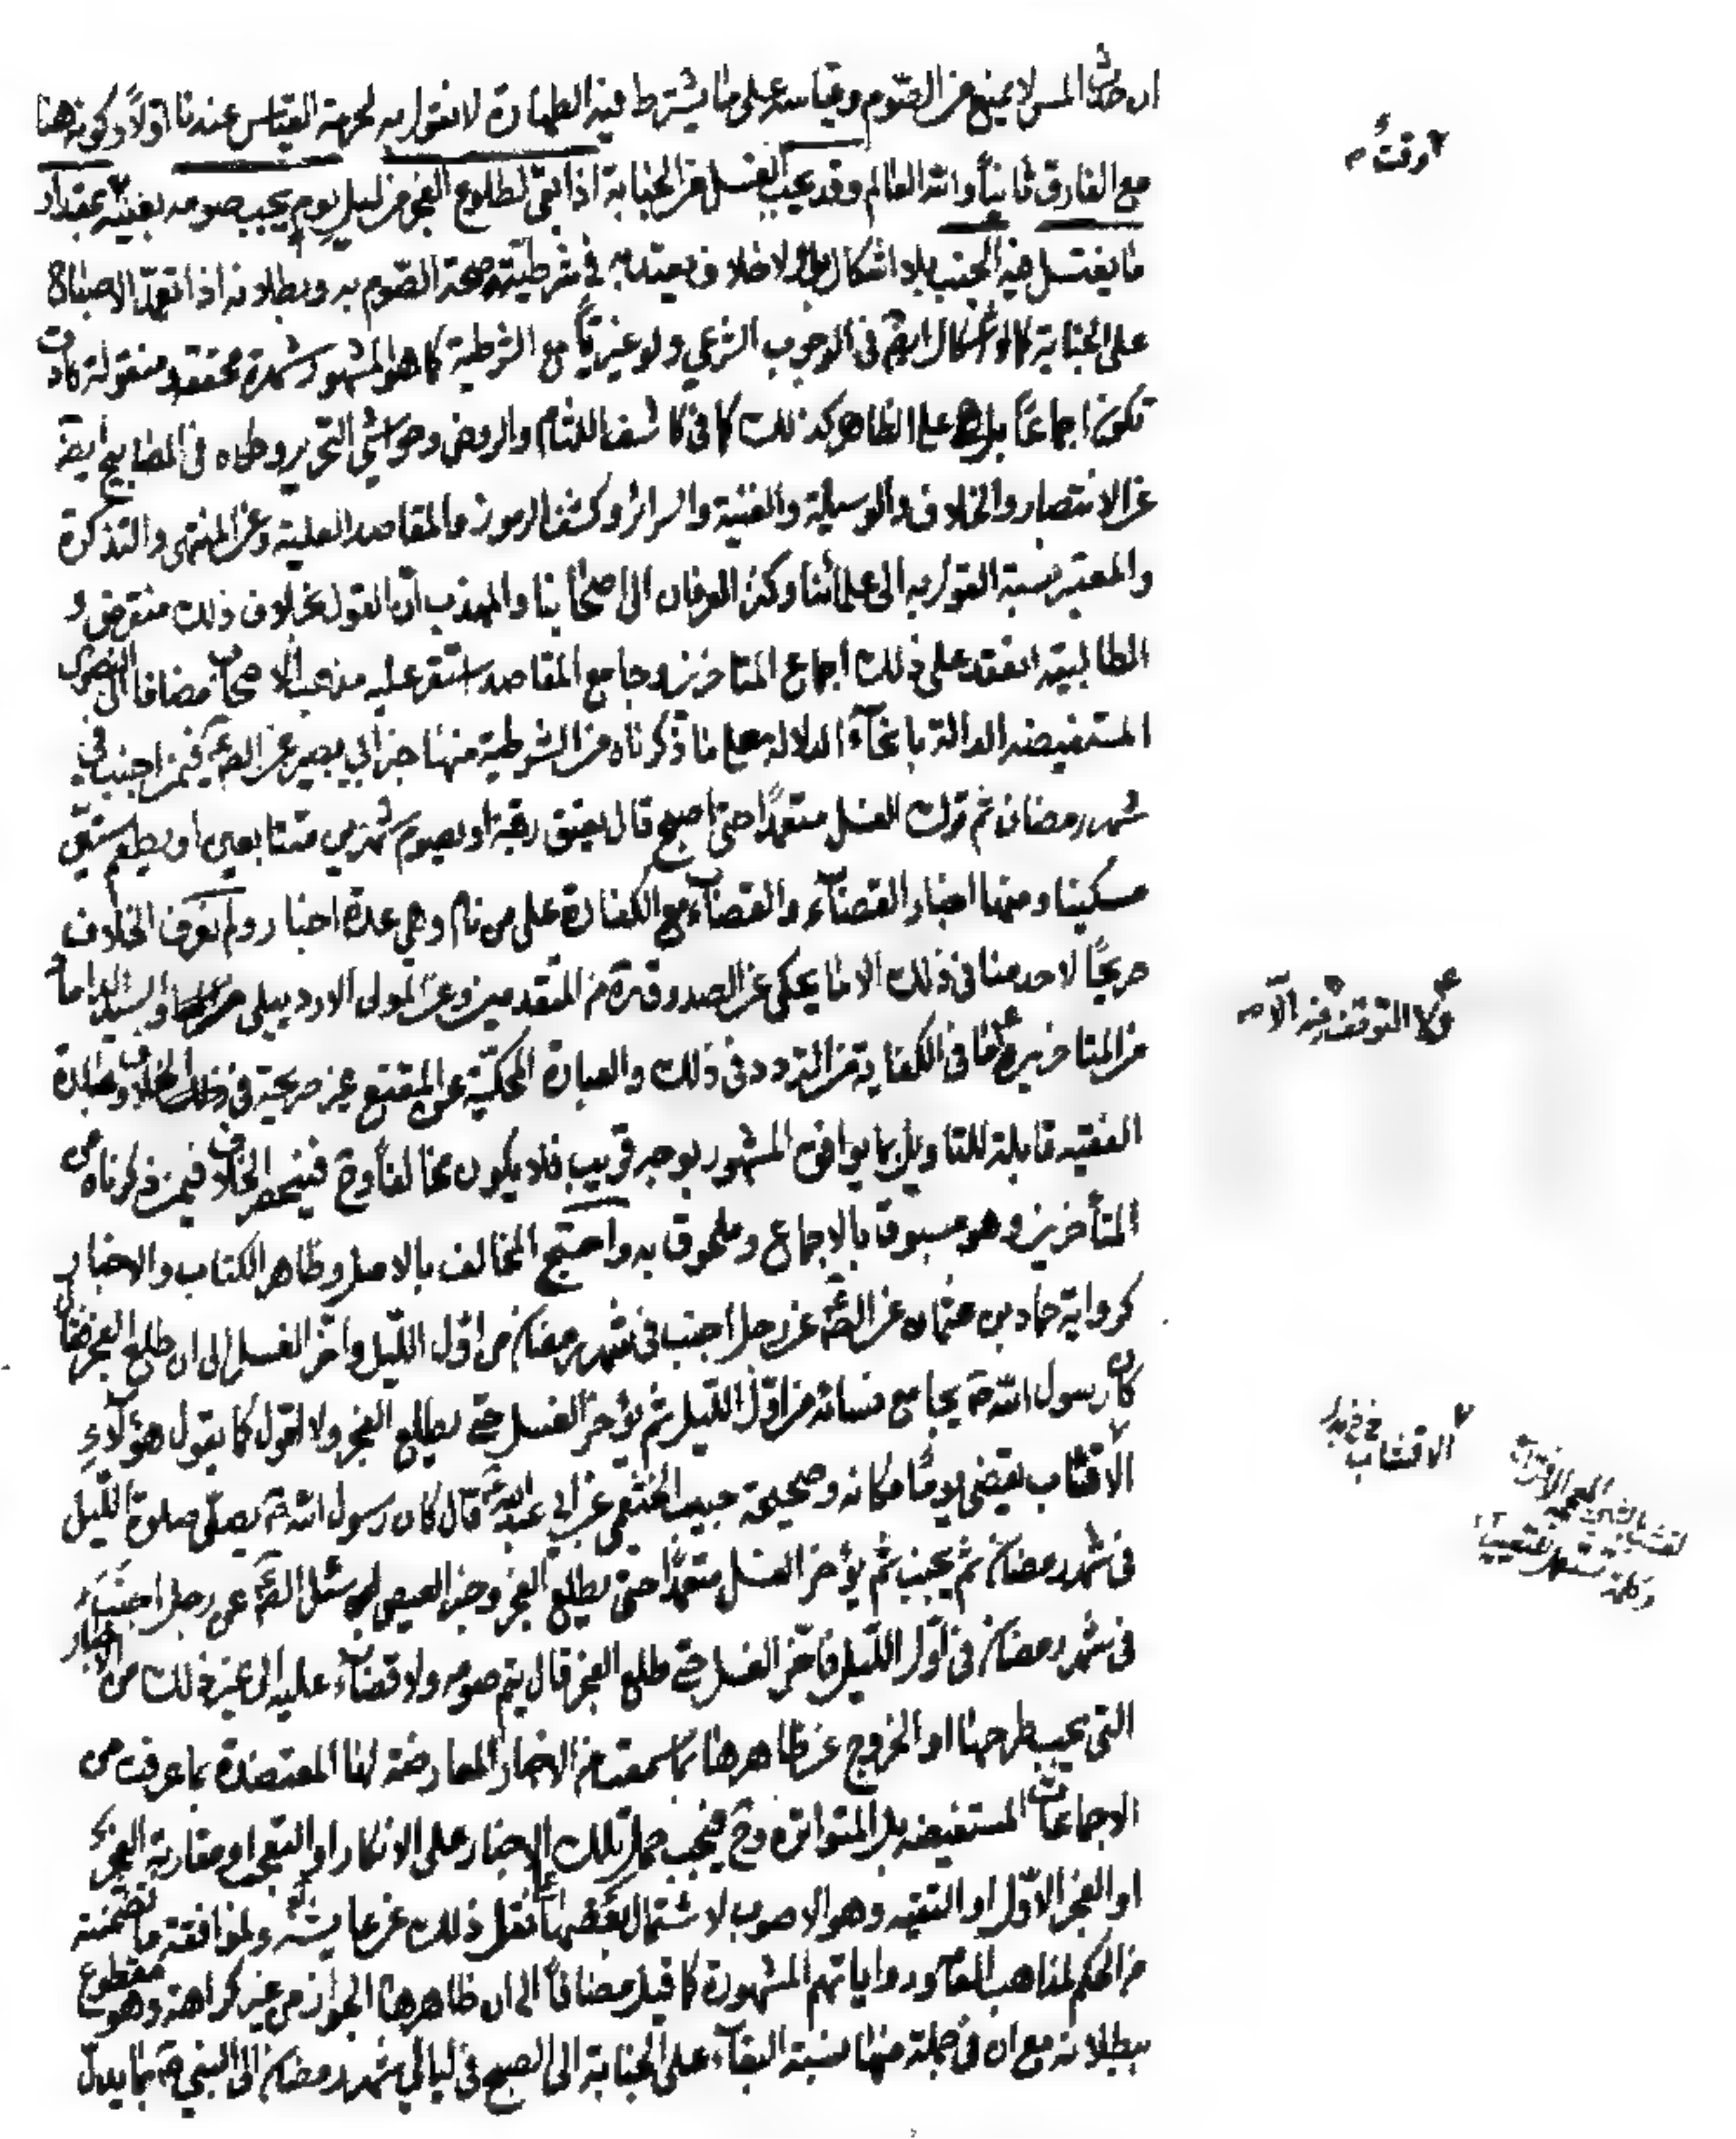 ان حدث المس لا يمنع من الصوم وقياسه على ما يشترط فيه الطهارة لا نقول به لحرمة القياس عندنا اولاً وكونه هنا
مع الفارق ثانياً والله العالم وقد يجب الغسل من الجنابة اذا بقى لطلوع الفجر من ليل يوم يجب صومه بعينه بمقدار
ما يغتسل فيه الجنب بلا اشكال بل ولا خلاف يعتد به في شرطيته صحة الصوم به وبطلانه اذا تعمد الاصباح
على الجنابة كما لا اشكال ايضً في الوجوب الشرعي ولو غيرياً مع الشرطية كما هو المشهور شهرة محققة ومنقولة كادت
تكون اجماعاً بل هو على الظاهر كذلك كما في كاشف اللثام والروض وحواشي التحرير وظاه في المصابيح ايضً
عن الانتصار والخلاف والوسيلة والغنية والسرائر وكشف الرموز والمقاصد العلية وعن المنتهى والتذكرة
والمعتبر نسبة القول به الى علمائنا وكنز العرفان الى اصحابنا والمهذب ان القول بخلاف ذلك منقرض و
المطالبية انعقد على ذلك اجماع المتاخرين وجامع المقاصد استقر عليه مذهب الاصحاب مضافا الى النصوص
المستفيضة الدالة بانحاء الدلالة على ما ذكرناه من الشرطية منها خبر ابي بصير عن الصّ ع فيمن اجنب في
شهر رمضان ثم ترك الغسل متعمداً حتى اصبح قال يعتق رقبة او يصوم شهرين متتابعين او يطعم ستين
مسكينا ومنها اخبار القضاء والقضاء مع الكفارة على من نام وهي عدة اخبار ولم نعرف الخلاف
صريحاً لاحد منا في ذلك الا ما يحكى عن الصدوق ره من المتقدمين وعن المولى الاردبيلي والسيد الداماد
من المتاخرين ما في الكفاية من التردد في ذلك والعبارة المحكيّة عن المقنع غير صريحة في الخلاف وعبارة
الفقيه قابلة للتاويل بما يوافق المشهور بوجه قريب فلا يكون مخالفاً وح فينحصر الخلاف فيمن ذكرناه من
المتأخرين وهو مسبوق بالاجماع وملحوق به واحتج المخالف بالاصل وظاهر الكتاب والاخبار
كرواية حماد بن عثمان عن الصّ ع عن رجل اجنب في شهر رمضان من اوّل الليل واخّر الغسل الى ان طلع الفجر فقال
كان رسول الله ص يجامع نسائه من اوّل الليل ثم يؤخر الغسل حتى يطلع الفجر ولا اقول كما يقول هؤلاء
الاقشاب يقضي يوماً مكانه وصحيحة حبيب الخثعمي عن ابي عبد الله ع قال كان رسول الله ص يصلّي صلوة الليل
في شهر رمضان ثم يجنب ثم يؤخر الغسل متعمّداً حتى يطلع الفجر وخبر العيص سئل الصّ ع عن رجل اجنب
في شهر رمضان في اوّل الليل فاخّر الغسل حتى طلع الفجر قال يتم صومه ولا قضاء عليه الى غير ذلك من الاخبار
التي يجب طرحها او الخروج عن ظاهرها بما سمعت من الاخبار المعارضة لها المعتضدة بما عرفت من
الاجماعات المستفيضة بل المتواترة وح فيجب حمل تلك الاخبار على الانكار او التعجب او مقاربة الفجر
او الفجر الاوّل او التقية وهو الاصوب لاشتمال بعضها نقل ذلك عن عايشة ولموافقة ما تضمنته
من الحكم لمذاهب العامّة ورواياتهم المشهورة كما قيل مضافاً الى ان ظاهرها الجواز من غير كراهة وهو مقطوع
ببطلانه مع ان في جملة منها نسبة البقاء على الجنابة الى الصبح في ليالي شهر رمضان الى النبي ص بما يدل
او وقت
والا التوقف فيه
الاقشاب